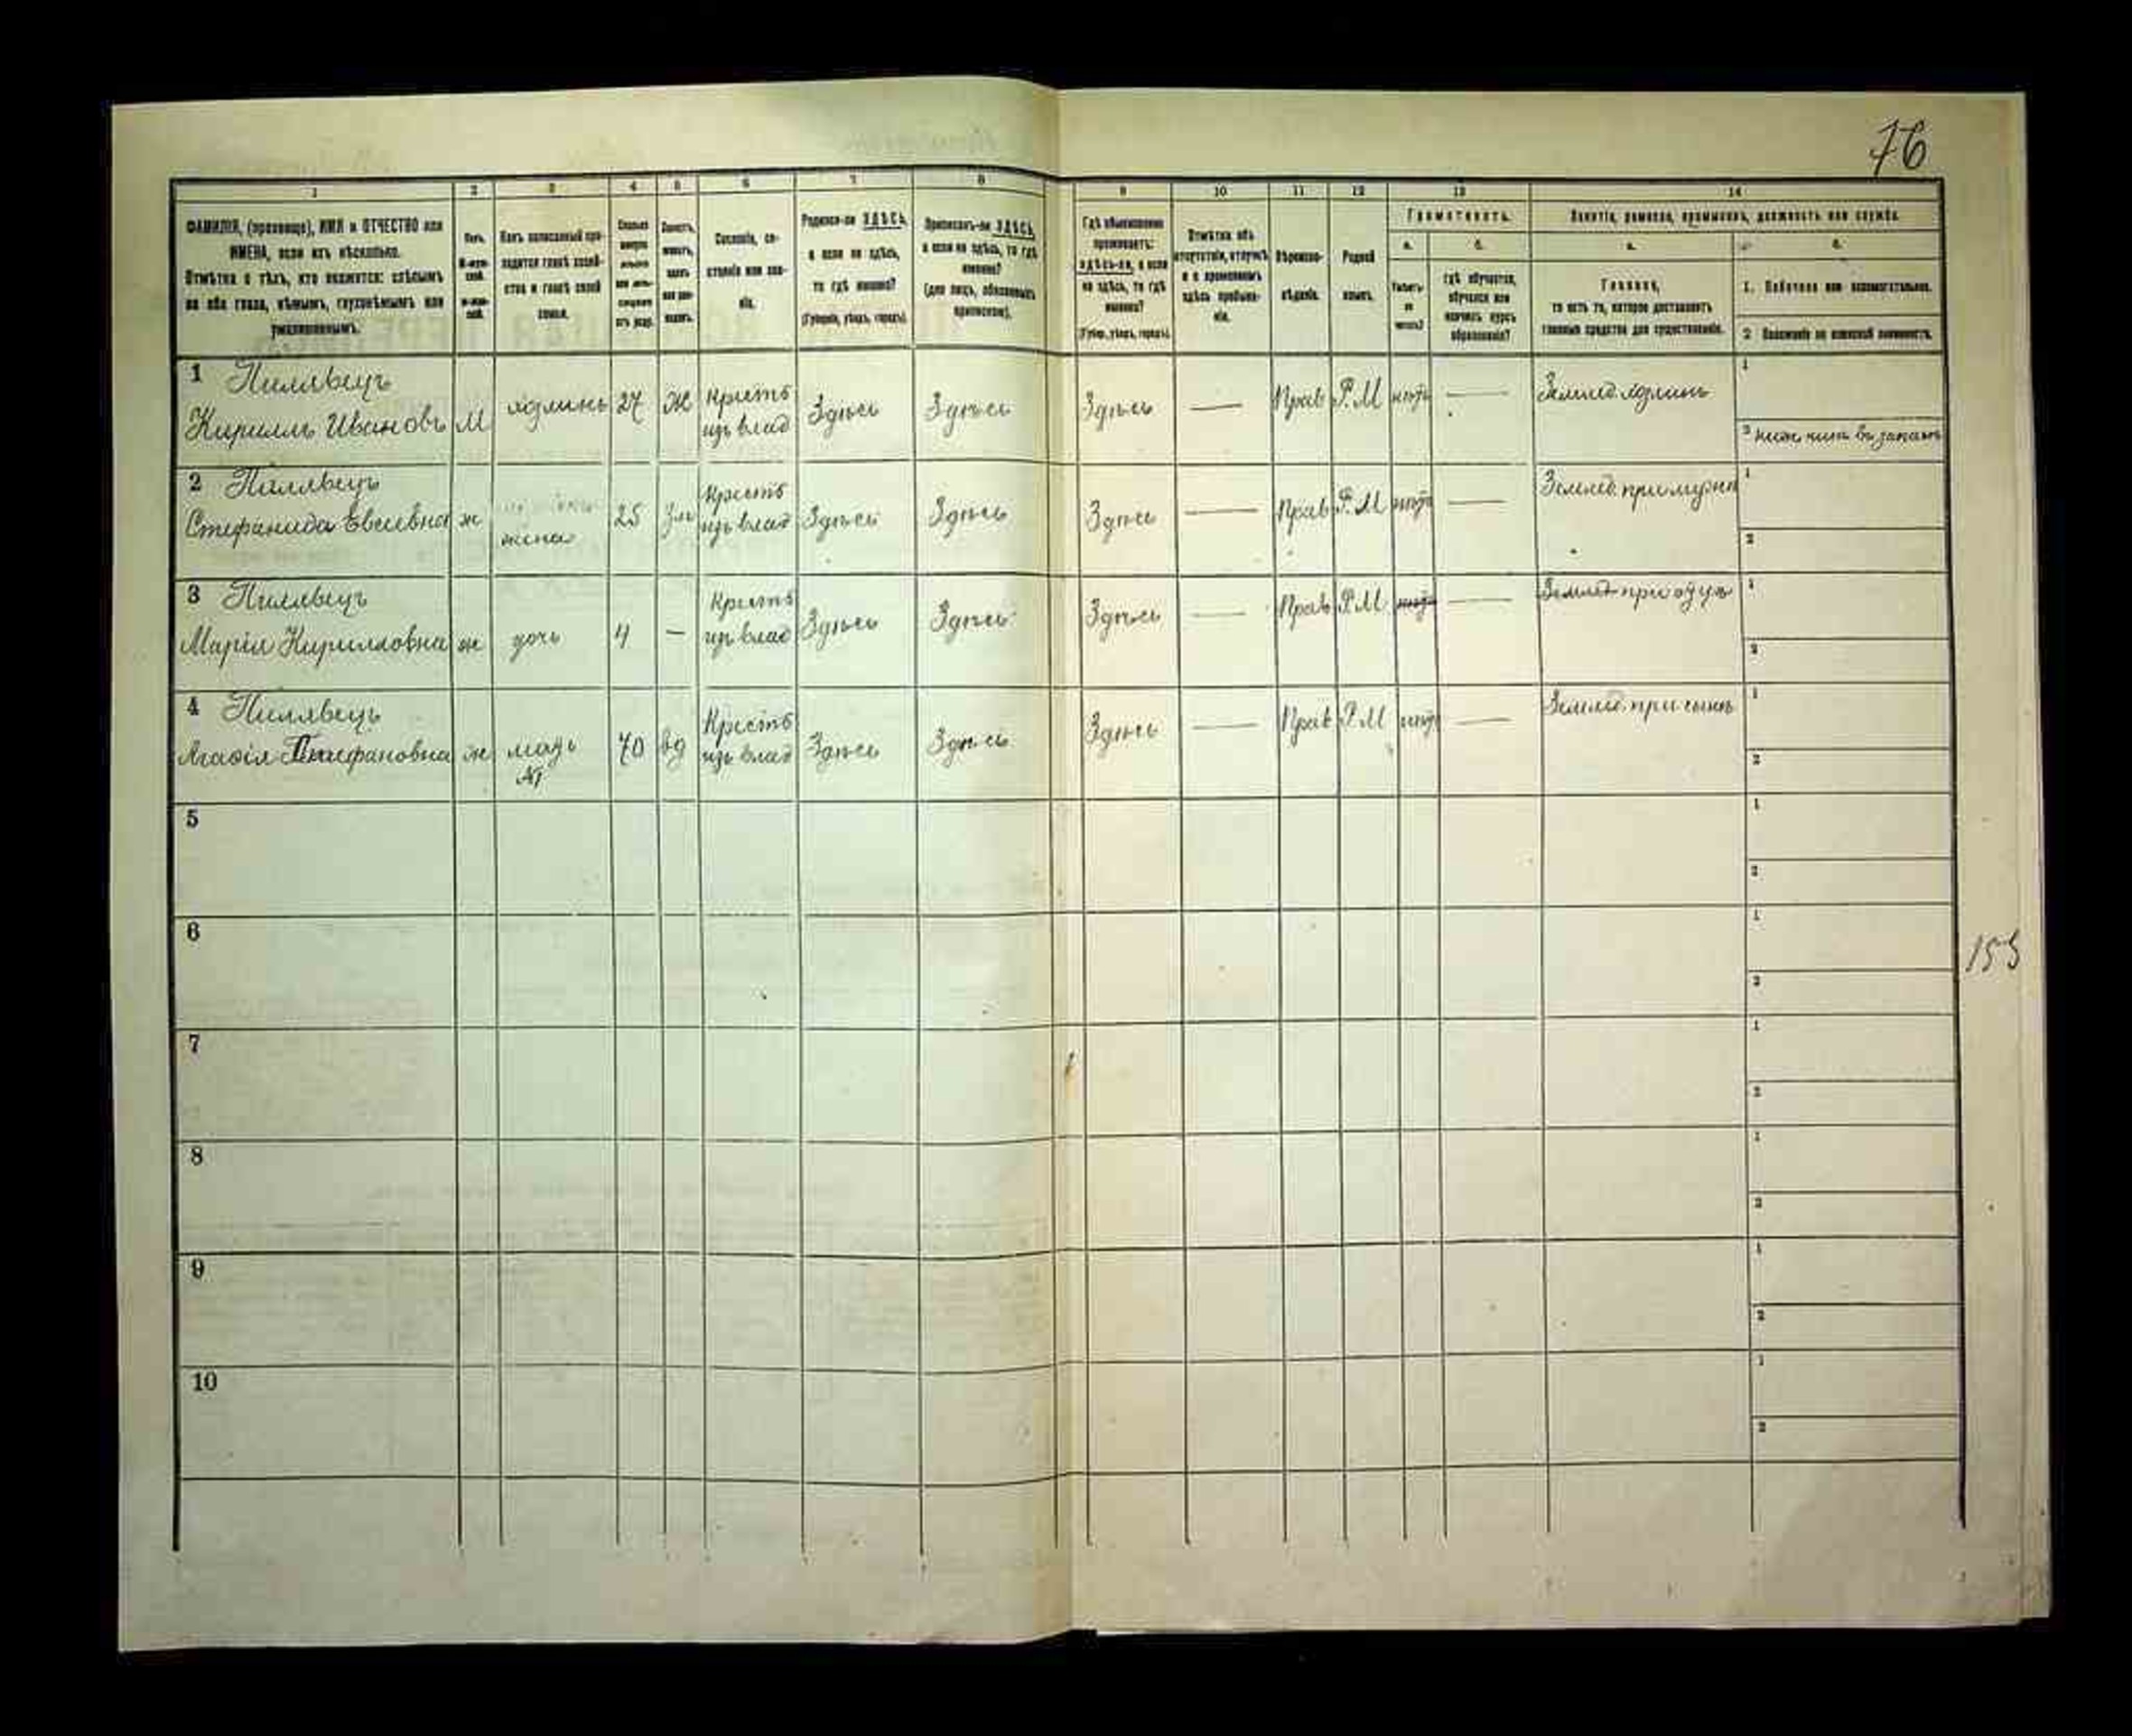 76
1 2 3 4 5 6 7 8 9 10 11 12 13 14
ФАМИЛІЯ, (прозвище), ИМЯ и ОТЧЕСТВО или
ИМЕНА, если ихъ нѣсколько.
Отмѣтка о тѣхъ, кто окажется: слѣпымъ
на оба глаза, нѣмымъ, глухонѣмымъ или
умалишеннымъ.
Полъ.
Какъ записанный при-
ходится главѣ хозяй-
ства и главѣ своей
семьи.
Сословіе, со-
стояніе или зва-
ніе.
Родился-ли ЗДѢСЬ,
а если не здѣсь,
то гдѣ именно?
(Губернія, уѣздъ, городъ).
Приписанъ-ли ЗДѢСЬ,
а если не здѣсь, то гдѣ
именно?
(для лицъ, обязанныхъ
припискою).
Гдѣ обыкновенно
проживаетъ:
здѣсь-ли, а если
не здѣсь, то гдѣ
именно?
(Губер., уѣздъ, городъ).
Отмѣтка объ
отсутствіи, отлучкѣ
и о временномъ
здѣсь пребыва-
ніи.
Вѣроиспо-
вѣданіе.
Родной
языкъ.
Грамотность.
а. б.
Умѣетъ-
ли
читать?
гдѣ обучается,
обучался или
кончилъ курсъ
образованія?
Занятіе, ремесло, промыселъ, должность или служба.
а. б.
Главное,
то есть то, которое доставляетъ
главныя средства для существованія.
1. Побочное или вспомогательное.
2 Положеніе по воинской повинности.
1 Пиллвецъ
Кирилъ Ивановъ М хозяинъ 27 Ж Крестъ изъ влад Здѣсь Здѣсь Здѣсь — Прав Р.М нѣтъ — Землед. хозяинъ
1
2
2 Пиллвецъ
Стефанида Евсѣевна ж жена 25 Зм Крестъ изъ влад Здѣсь Здѣсь Здѣсь — Прав Р.М нѣтъ — Землед. при мужѣ
1
2
3 Пиллвецъ
Марія Кирилловна ж дочь 4 — Крестъ изъ влад Здѣсь Здѣсь Здѣсь — Прав Р.М нѣтъ — Землед при отцѣ
1
2
4 Пиллвецъ
Агафія Стефановна ж мать 70 вд Крестъ изъ влад Здѣсь Здѣсь Здѣсь — Прав Р.М нѣтъ — Землед. при сынѣ
1
2
5 1
2
6 1
2
153
7 1
2
8 1
2
9 1
2
10 1
2